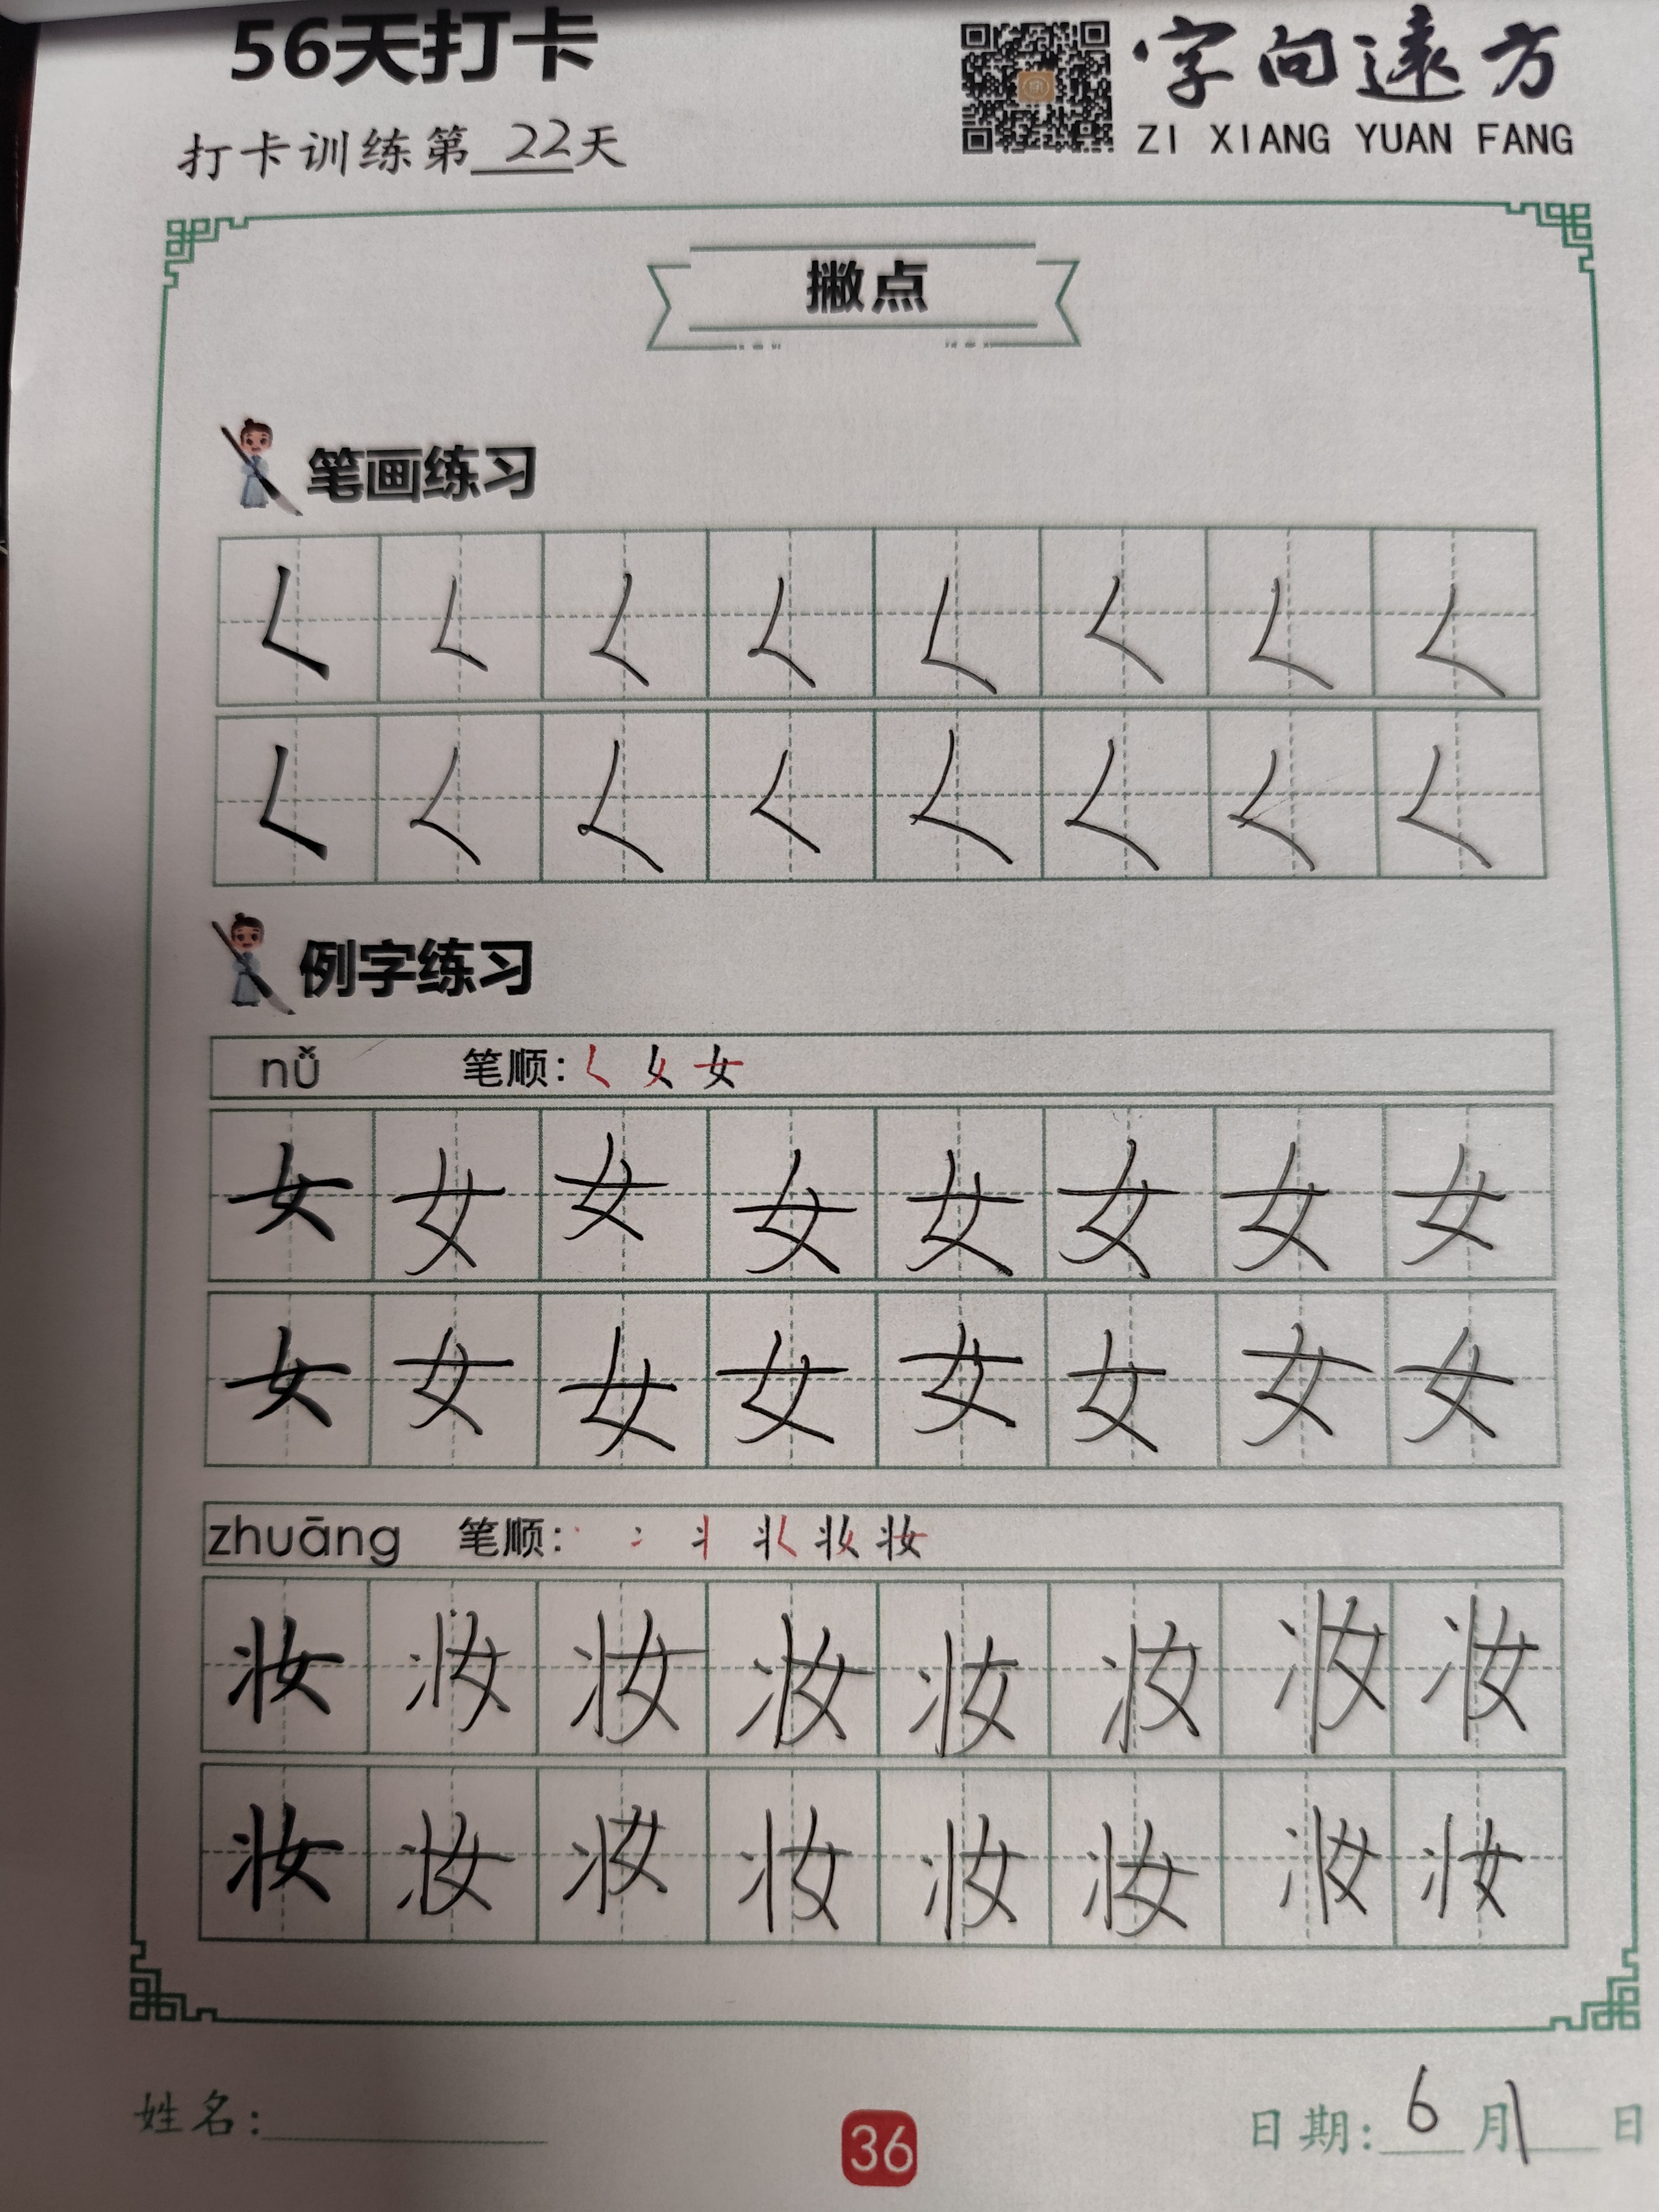 56天打卡
字向遠方
ZI XIANG YUAN FANG
打卡训练第22天
撇点
笔画练习
𡿨 𡿨 𡿨 𡿨 𡿨 𡿨 𡿨 𡿨
𡿨 𡿨 𡿨 𡿨 𡿨 𡿨 𡿨 𡿨
例字练习
nǚ 笔顺: 𡿨 女 女
女 女 女 女 女 女 女 女
女 女 女 女 女 女 女 女
zhuāng 笔顺: 丶 冫 丬 妆 妆
妆 妆 妆 妆 妆 妆 妆 妆
妆 妆 妆 妆 妆 妆 妆 妆
姓名:
36
日期: 6月1日